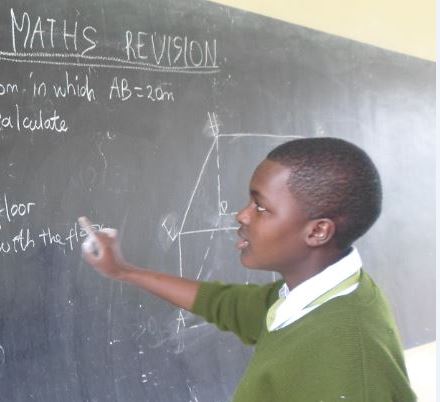 MATHS REVISION
in which AB = 20m
alculate
floor
with the
H
D
A